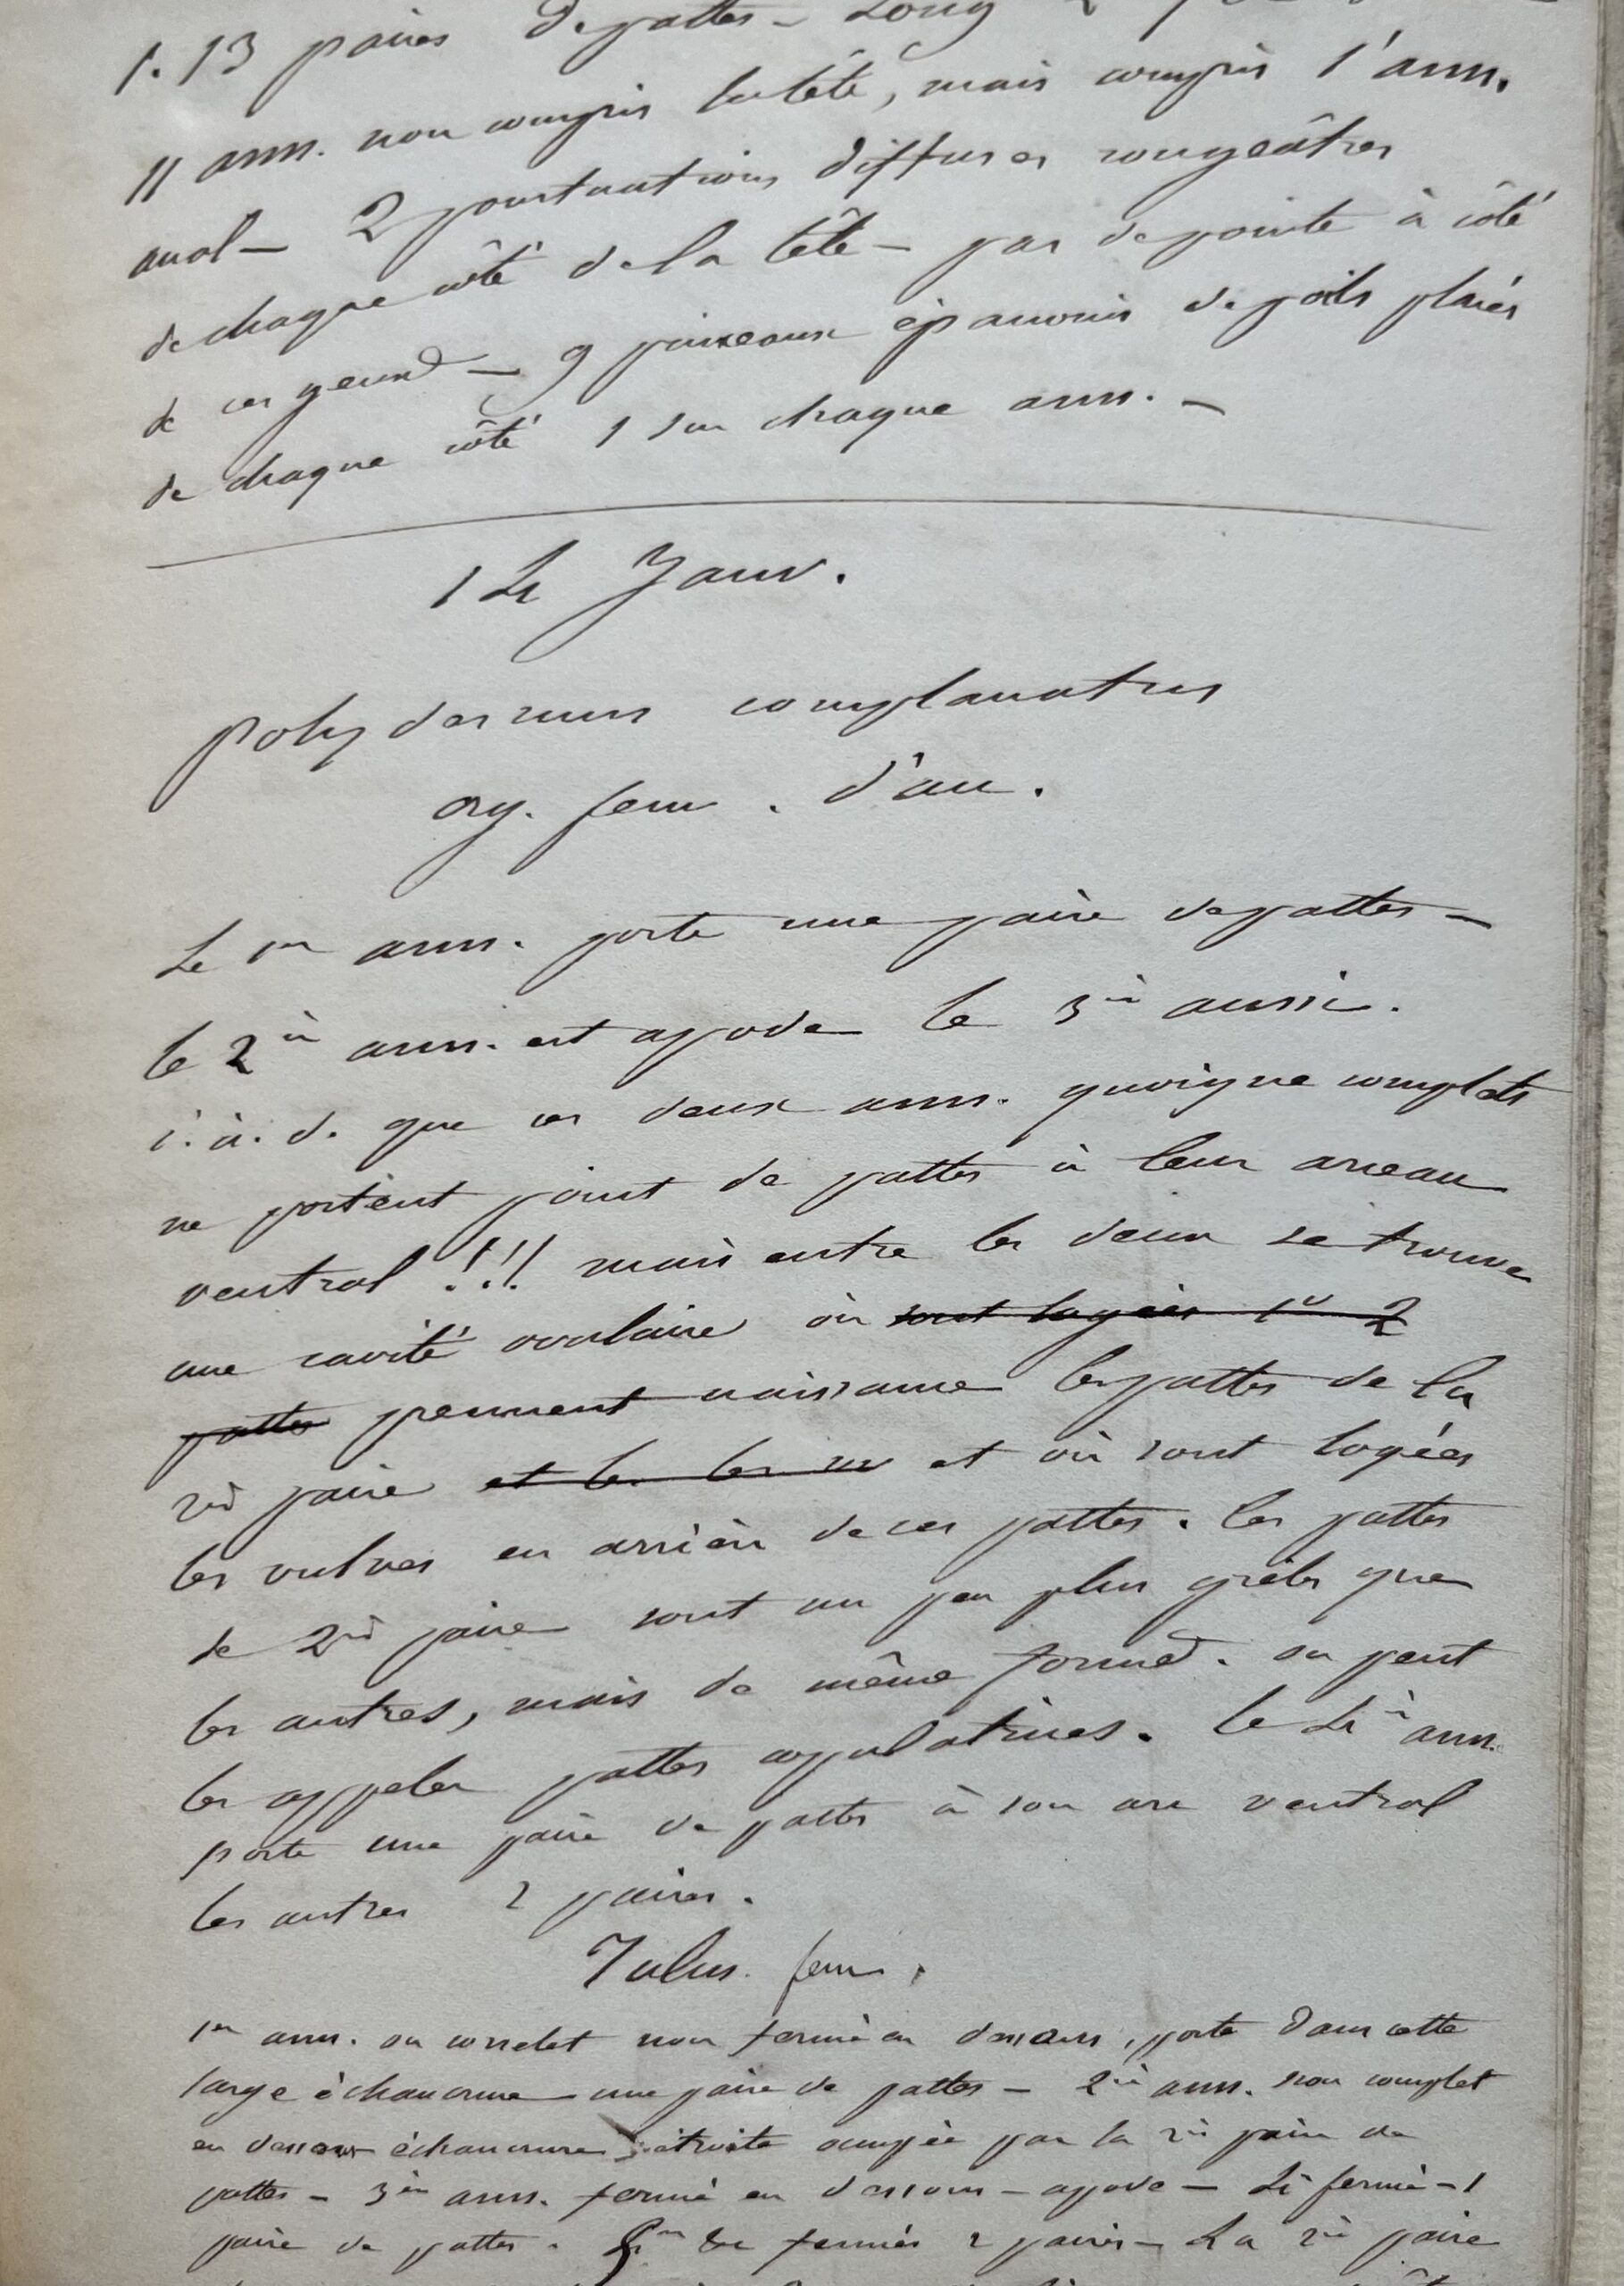 1. 13 paires de pattes - Long
11 ann. non compris la tête, mais compris l'ann.
anal - 2 ponctuations diffuses rougeâtres
de chaque côté de la tête - pas de pointe à côté
de ces yeux - 9 faisceaux épanouis de poils placés
de chaque côté 1 sur chaque ann. -
14 Janv.
polydesmus complanatus
org. fem. d'au.
Le 1er ann. porte une paire de pattes -
le 2è ann. est apode le 3è aussi.
c. à. d. que ces deux ann. quoique complets
ne portent point de pattes à leur arceau
ventral !!! mais entre les deux se trouve
une cavité ovalaire où sont logées la 2
pattes prennent naissance les pattes de la
2è paire et le les et où sont logées
les vulves en arrière de ces pattes. les pattes
de 2è paire sont un peu plus grêles que
les autres, mais de même forme. on peut
les appeler pattes copulatrices. le 4è ann.
porte une paire de pattes à son arc ventral
les autres 2 paires.
Iulus. fem.
1er ann. ou corselet non fermé en dessous, porte dans cette
large échancrure une paire de pattes - 2è ann. non complet
en dessous échancrure étroite occupée par la 2è paire de
pattes - 3è ann. fermé en dessous - apode - 4è fermé - 1
paire de pattes. 5è &c fermés 2 paires - La 2è paire